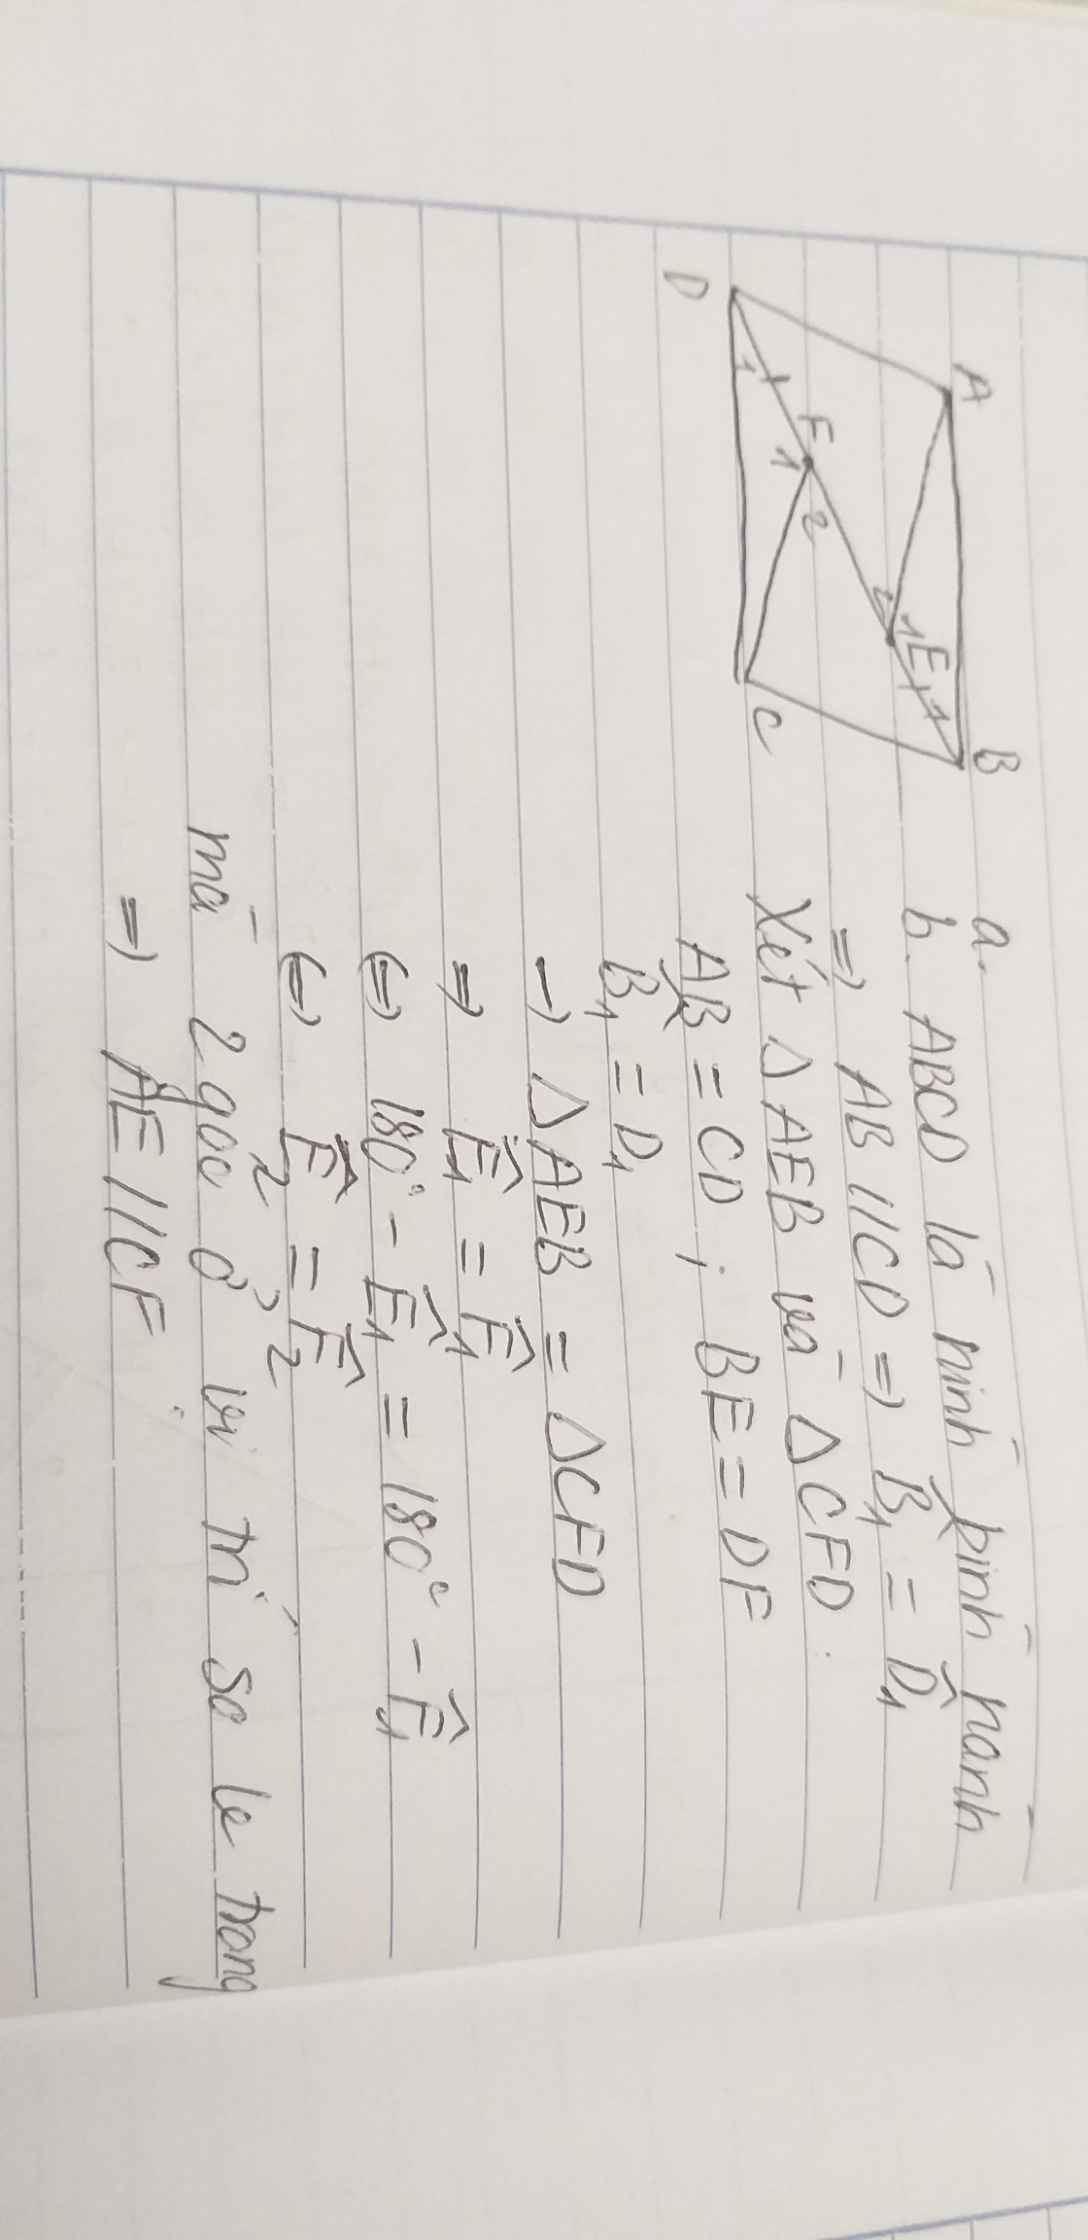 A
B
E
1
1
2
F
1
2
1
D
C
a.
b. ABCD là hình bình hành
=> AB // CD => B̂₁ = D̂₁
Xét Δ AEB và Δ CFD.
AB = CD ; BE = DF
B̂₁ = D₁
-> Δ AEB = Δ CFD
=> Ê₁ = F̂₁
<=> 180° - Ê₁ = 180° - F̂₁
<=> Ê₂ = F̂₂
mà 2 góc ở vị trí so le trong
=> AE // CF